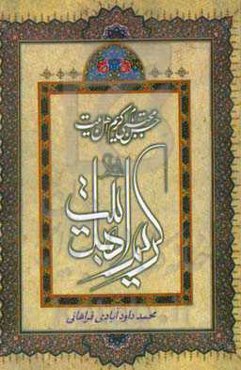 حسن مجتبی کریم اهل بیت
کریم اهل بیت
محمد داودآبادی فراهانی